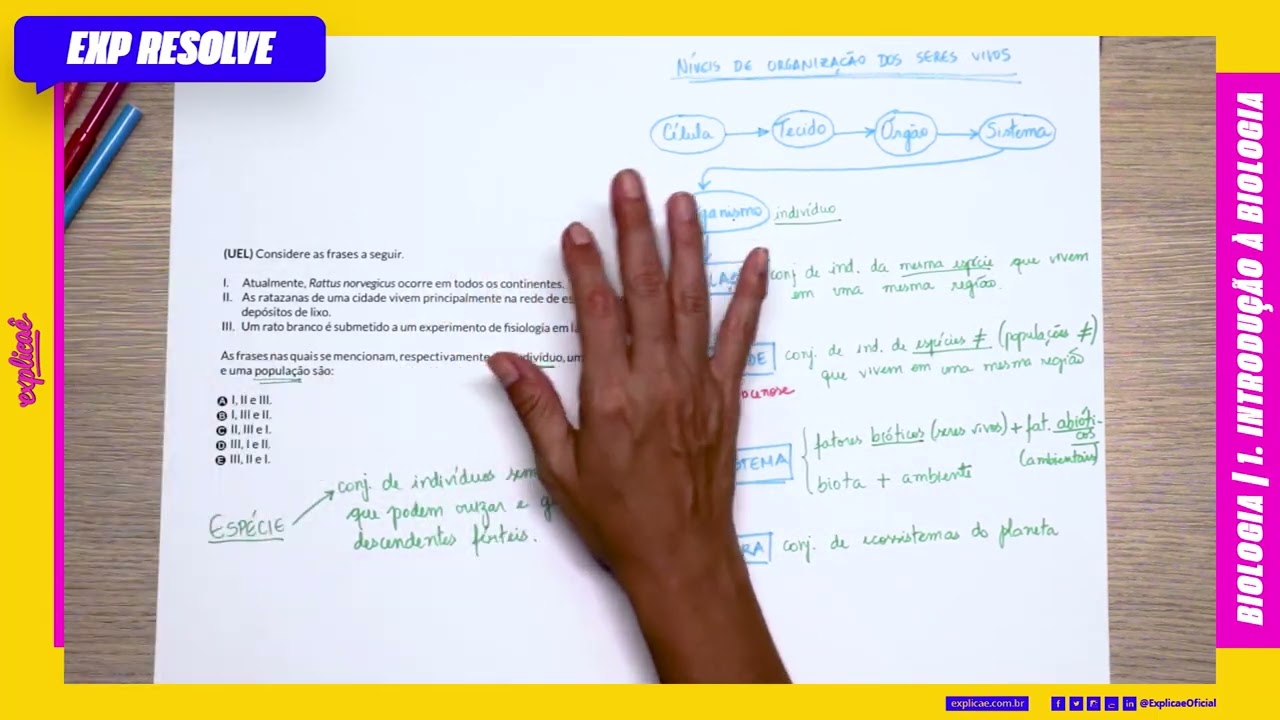 EXP RESOLVE
NÍVEIS DE ORGANIZAÇÃO DOS SERES VIVOS
Célula Tecido Órgão Sistema
ganismo indivíduo
(UEL) Considere as frases a seguir.
I. Atualmente, Rattus norvegicus ocorre em todos os continentes.
II. As ratazanas de uma cidade vivem principalmente na rede de es
depósitos de lixo.
III. Um rato branco é submetido a um experimento de fisiologia em la
As frases nas quais se mencionam, respectivamente divíduo, um
e uma população são:
A I, II e III.
B I, III e II.
C II, III e I.
D III, I e II.
E III, II e I.
ESPÉCIE
conj. de indivíduos sem
que podem cruzar e g
descendentes férteis.
LAÇ conj de ind. da mesma espécie que vivem
em uma mesma região.
DE conj. de ind. de espécies ≠ (populações ≠)
que vivem em uma mesma região
cenose
TEMA fatores bióticos (seres vivos) + fat. abióti-
cos
(ambientais)
biota + ambiente
RA conj. de ecossistemas do planeta
explicaê
BIOLOGIA | 1. INTRODUÇÃO À BIOLOGIA
explicae.com.br @ExplicaeOficial